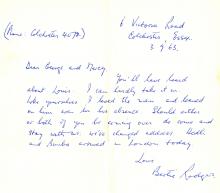 6 Victoria Road
Colchester, Essex.
3.9.63.
(Phone: Colchester 4078)
Dear George and Mercy
You'll have heard
about Louis. I can hardly take it in.
Like yourselves I loved the man and leaned
on him even in his absence. Should either
or both of you be coming over do come and
stay with us. We've changed address.
and arrived in London today.
Love